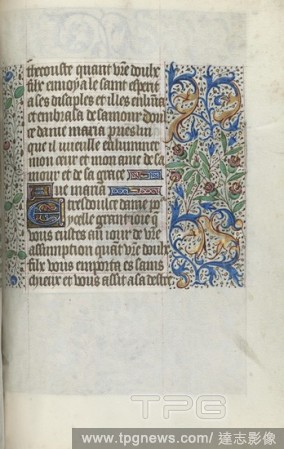 trecouste quant vre doulx
filz envoya le saint esperit
a ses disciples et il les enlumina
et embrasa de s'amour doul
ce dame maria pries luy
que il vueille enluminer
mon cuer et mon ame de sa
mour et de sa grace
Ave maria
Tresdoulce dame pour
celle grant joie q
vous eustes au jour de vre
assumption quant vre doulx
filz vous emporta es sains
cieulx et vous assit a sa destre
TPG
www.tpgnews.com/ 達志影像